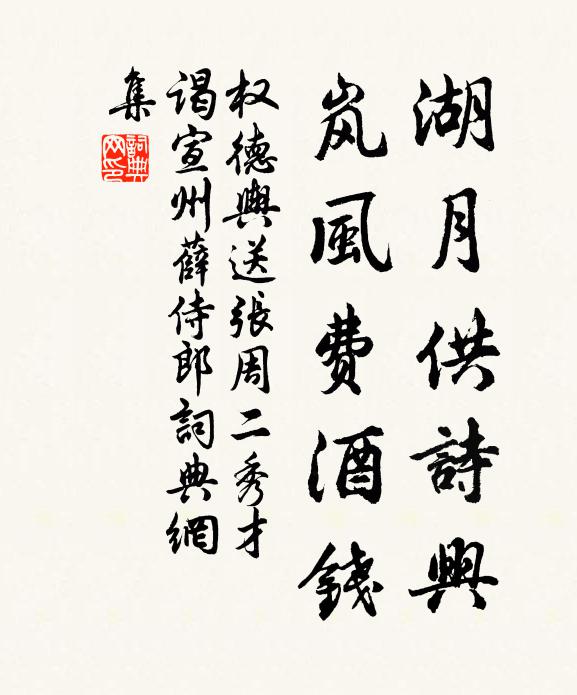 湖月供詩興
岚風费酒錢
权德輿送張周二秀才
谒宣州薛侍郎詞典網
集
詞典網印